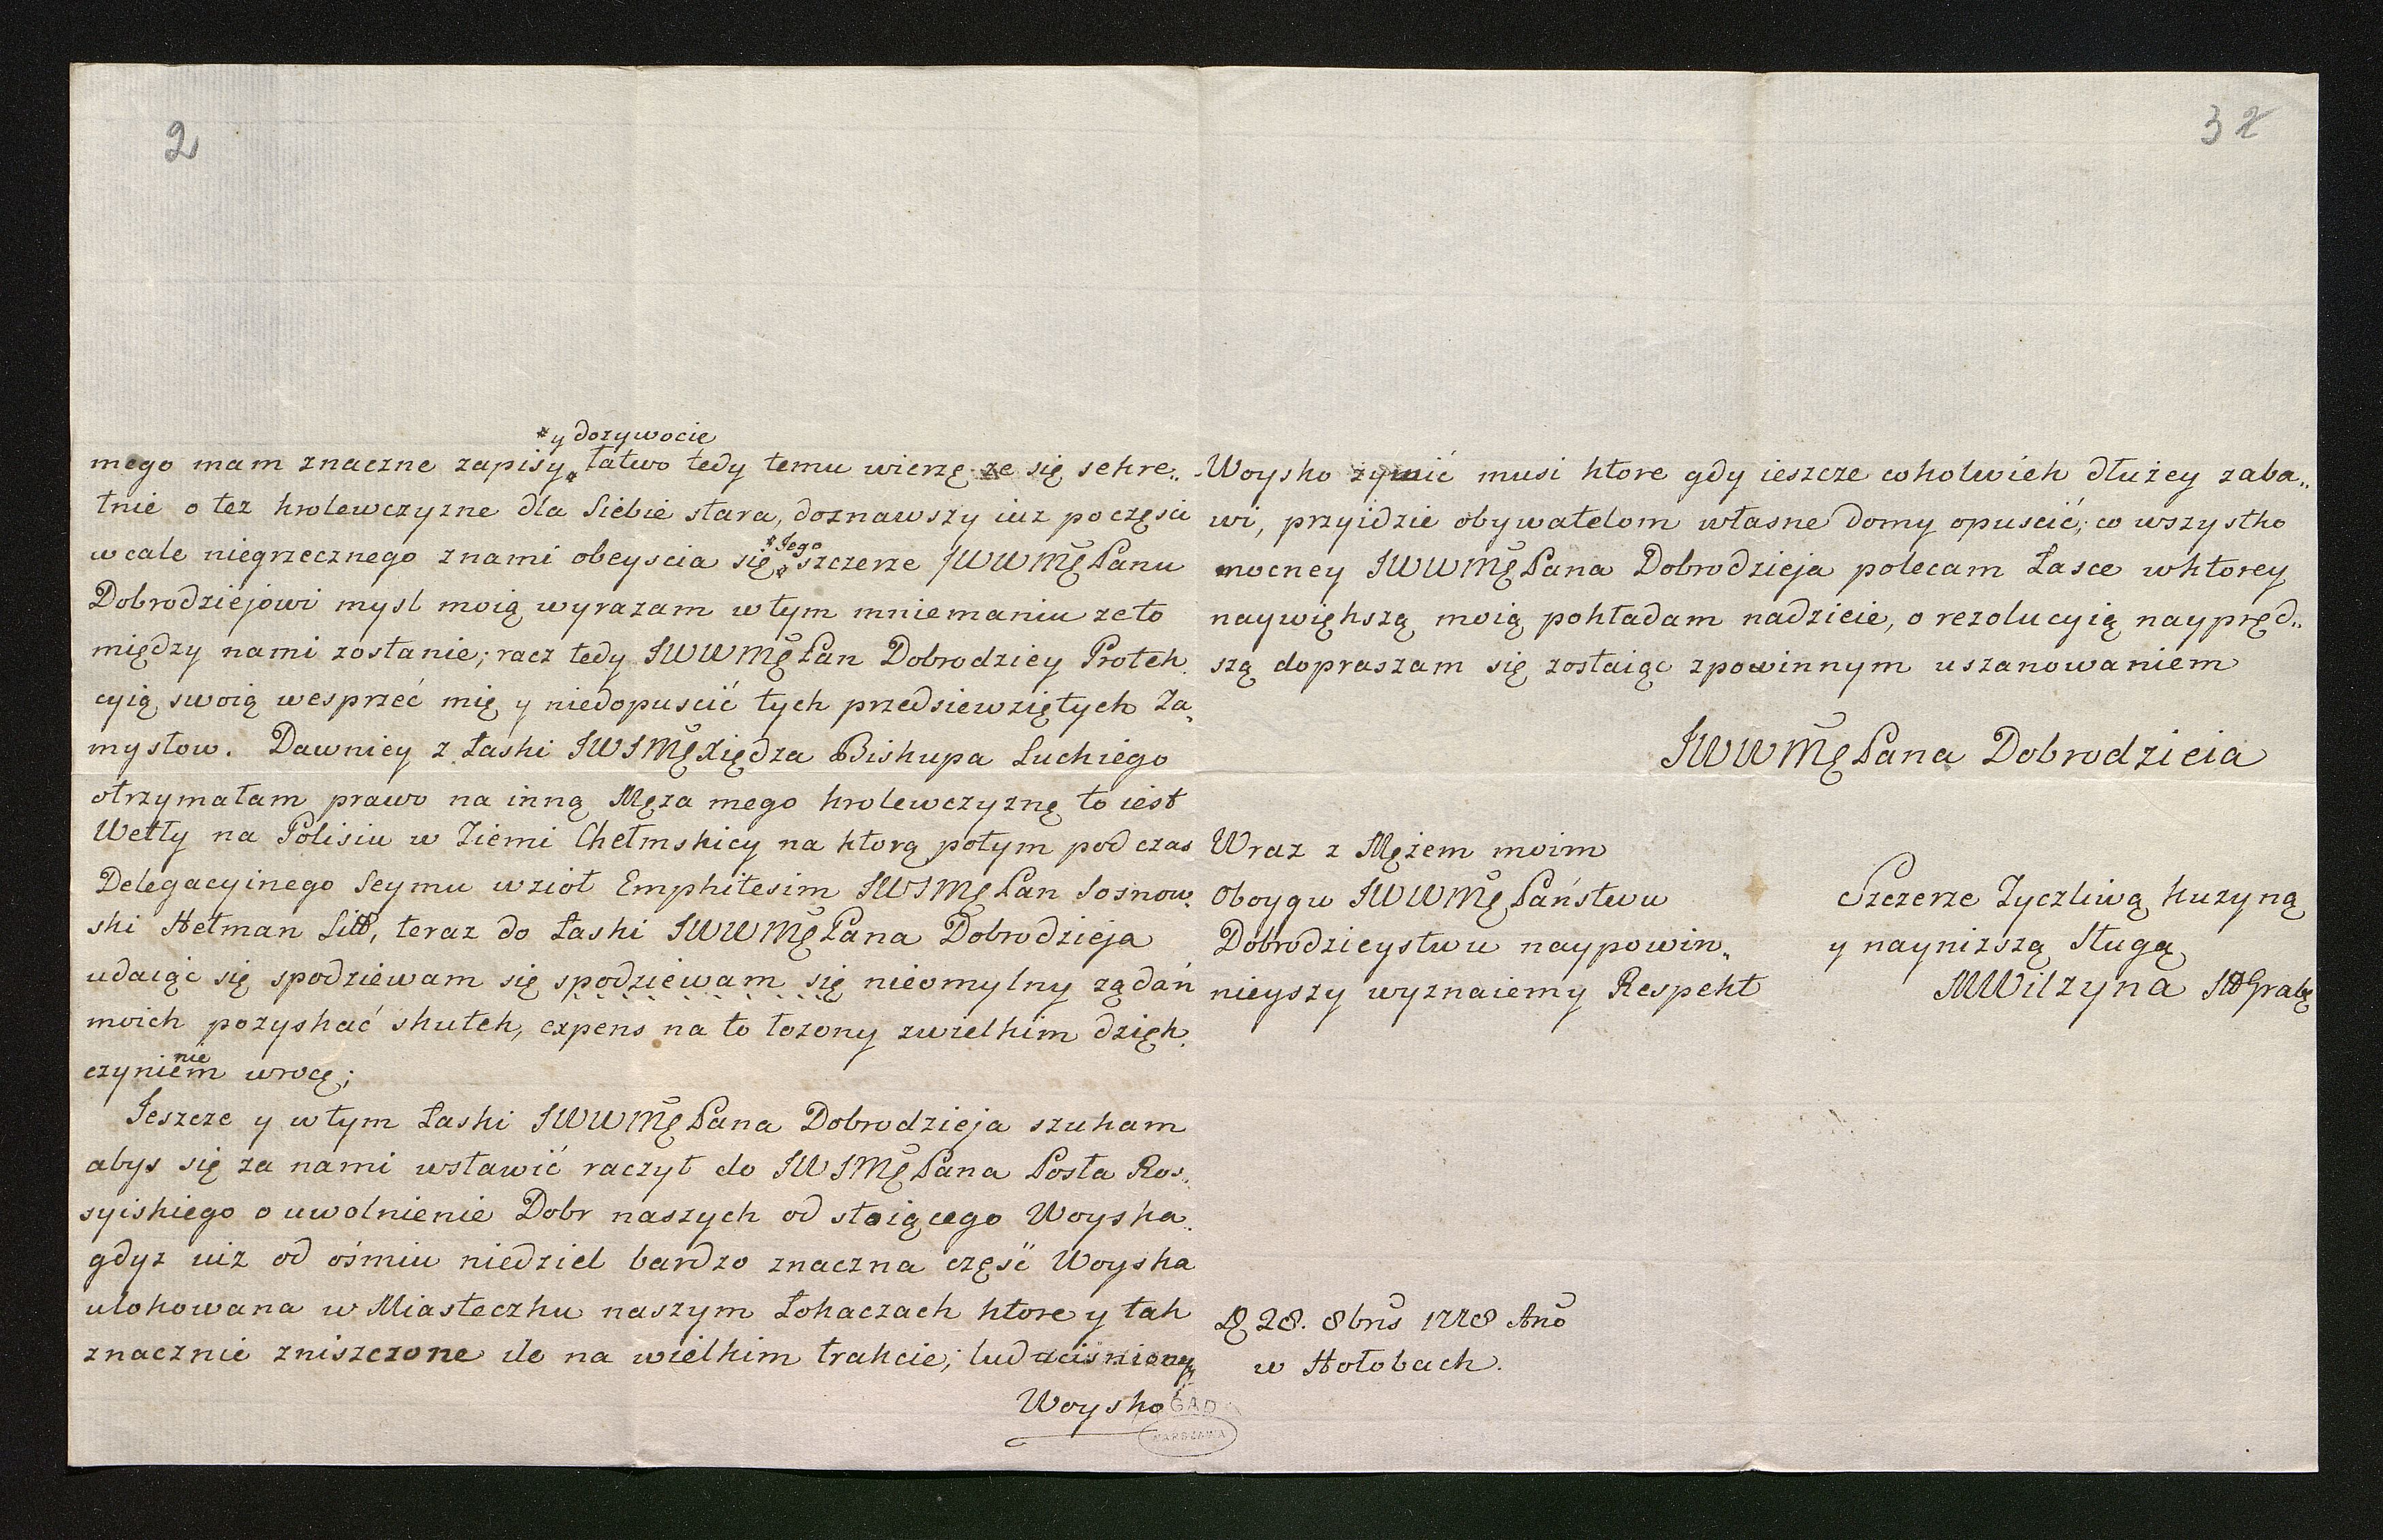 2
*y dozywocie
mego mam znaczne zapisy * łatwo tedy temu wierzę ze się sekre„
tnie o tez krolewczyzne dla Siebie stara, doznawszy iuz po części
w cale niegrzecznego znami obeyscia się *Jego * szczerze JWWMę Panu
Dobrodziejowi mysl moią wyrazam w tym mniemaniu ze to
między nami zostanie; racz tedy JWWMę Pan Dobrodziey Protek„
cyią swoią wesprzeć mię y niedopuscić tych przedsiewziętych Za„
mysłow. Dawniey z Łaski JWJMę Xiędza Biskupa Łuckiego
otrzymałam prawo na inną Męza mego krolewczyznę to iest
Wetły na Polisiu w Ziemi Chełmskiey na ktorą potym podczas
Delegacyinego Seymu wzioł Emphitesim JWJMę Pan Sosnow„
ski Hetman Litt, teraz do Łaski JWWMę Pana Dobrodzieja
udaiąc się spodziewam się spodziewam się nieomylny ządań
moich pozyskać skutek, expens na to łozony zwielkim dzięk„
czynieniem wrocę;
Jeszcze y w tym Łaski JWWMę Pana Dobrodzieja szukam
abys się za nami wstawić raczył do JWJMę Pana Posła Ros„
syiskiego o uwolnienie Dobr naszych od stoiącego Woyska„
gdyz iuz od ośmiu niedziel bardzo znaczna część Woyska
ulokowana w Miasteczku naszym Łokaczach ktore y tak
znacznie zniszczone ile na wielkim trakcie; lud uciśniony
Woysko
AGAD
WARSZAWA
3 2
Woysko zywić musi ktore gdy ieszcze cokolwiek dłużey zaba„
wi, przyidzie obywatelom własne domy opuscić; co wszystko
mocney JWWMę Pana Dobrodzieja polecam Łasce wktorey
naywiększą moią pokładam nadzieie, o rezolucyią naypręd„
szą dopraszam się zostaiąc zpowinnym uszanowaniem
JWWMę Pana Dobrodzieia
Wraz z Mężem moim
Oboygu JWWMę Państwu
Dobrodzieystwu naypowin„
nieyszy wyznaiemy Respekt
Szczerze Zyczliwą kuzyną
y nayniższą Sługą
MWilzyna
28. 8bris 1778 Ano
w Hołobach.